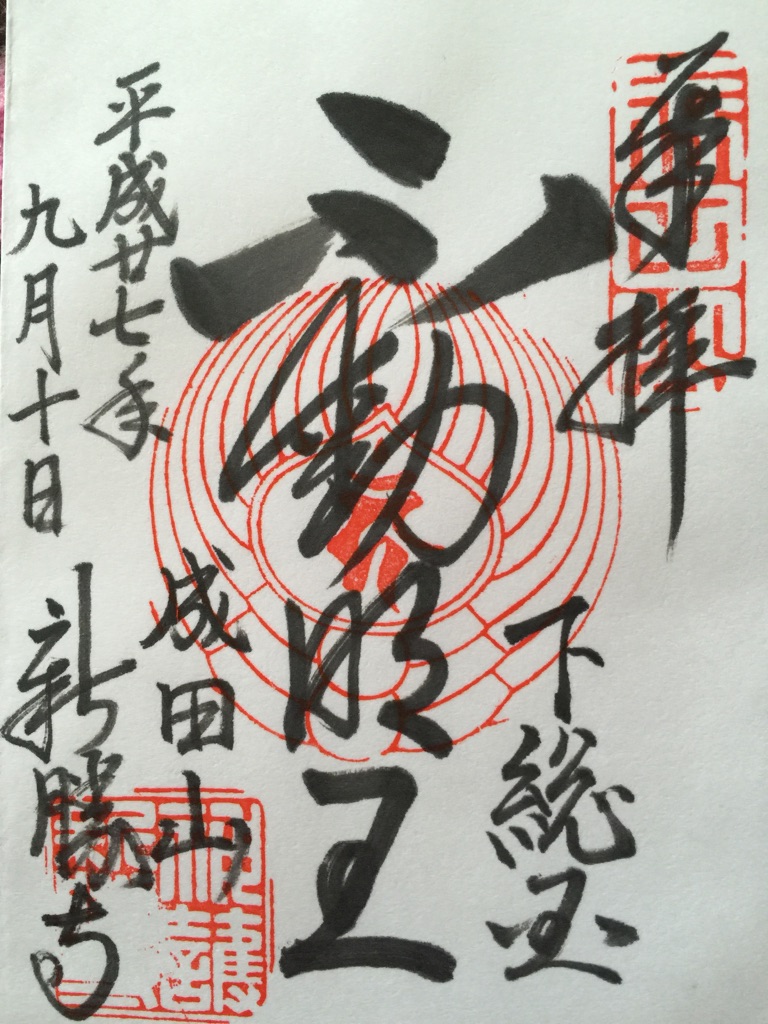 奉拝
下総国
不動明王
平成廿七年
九月十日
成田山
新勝寺